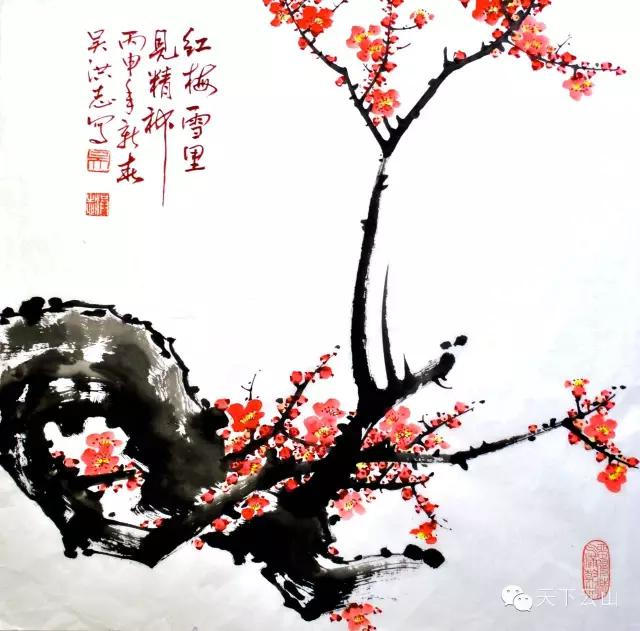 红梅雪里
见精神
丙申年新春
吴洪志写
天下云山